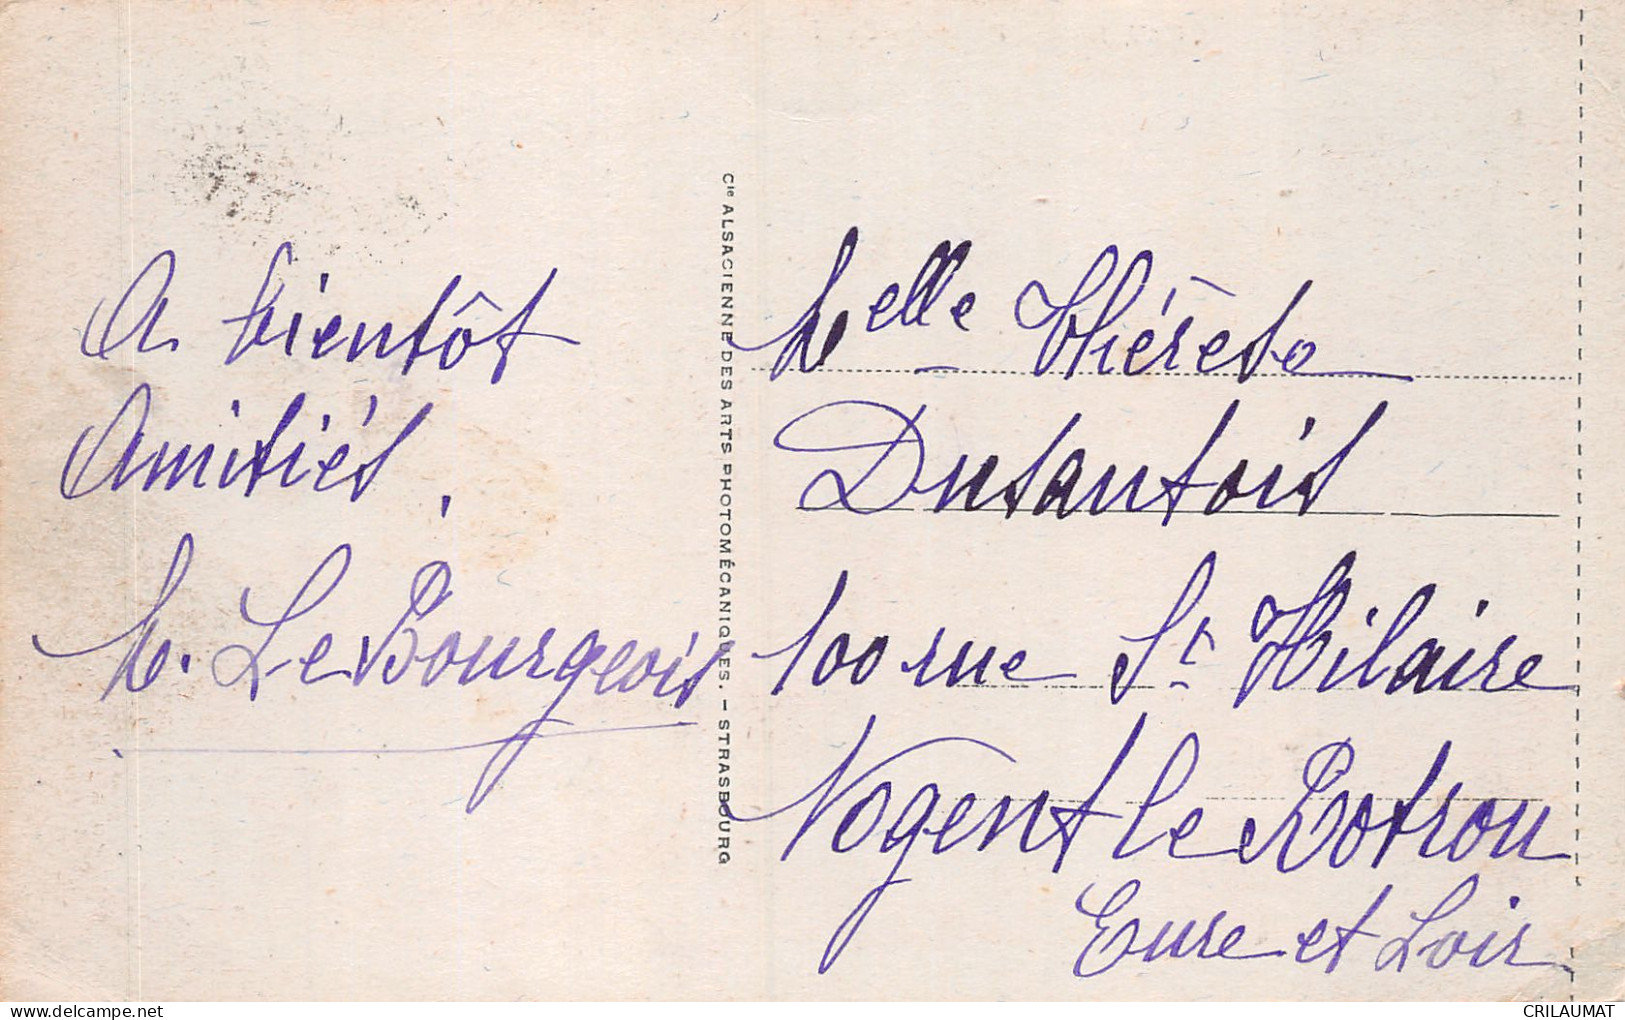 A bientôt
Amitiés,
M. Le Bourgeois
Cie ALSACIENNE DES ARTS PHOTOMÉCANIQUES. - STRASBOURG
Melle Thérèse
Dusantois
100 rue St Hilaire
Nogent le Rotrou
Eure et Loir
www.delcampe.net
CRILAUMAT